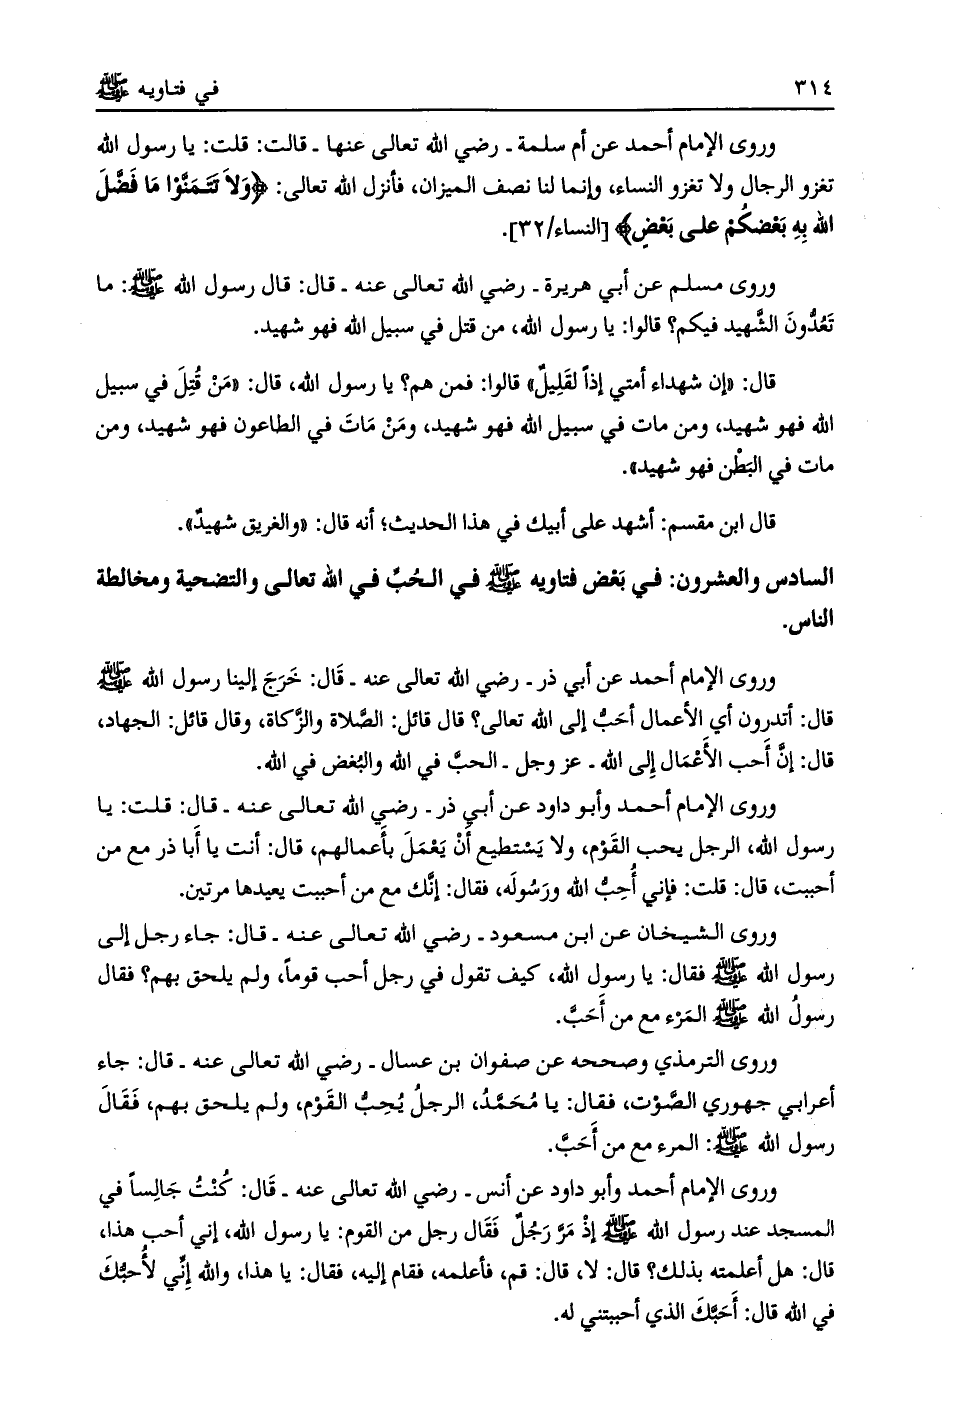 ٣١٤ في فتاويه ﷺ
وروى الإمام أحمد عن أم سلمة ـ رضي الله تعالى عنها ـ قالت: قلت: يا رسول الله
تغزو الرجال ولا تغزو النساء، وإنما لنا نصف الميزان، فأنزل الله تعالى: ﴿وَلاَ تَتَمَنَّوْا مَا فَضَّلَ
الله بِهِ بَعْضكُمْ على بَعْضٍ﴾ [النساء/٣٢].
وروى مسلم عن أبي هريرة ـ رضي الله تعالى عنه ـ قال: قال رسول الله ﷺ: ما
تَعُدُّونَ الشَّهيد فيكم؟ قالوا: يا رسول الله، من قتل في سبيل الله فهو شهيد.
قال: «إن شهداء أمتي إذاً لقَلِيلٌ» قالوا: فمن هم؟ يا رسول الله، قال: «مَنْ قُتِلَ في سبيل
الله فهو شهيد، ومن مات في سبيل الله فهو شهيد، ومَنْ مَاتَ في الطاعون فهو شهيد، ومن
مات في البَطْن فهو شهيد».
قال ابن مقسم: أشهد على أبيك في هذا الحديث؛ أنه قال: «والغريق شهيدٌ».
السادس والعشرون: في بَعْض فتاويه ﷺ في الحُبِّ في الله تعالى والتضحية ومخالطة
الناس.
وروى الإمام أحمد عن أبي ذر ـ رضي الله تعالى عنه ـ قَال: خَرَجَ إلينا رسول الله ﷺ
قال: أتدرون أي الأعمال أحَبُّ إلى الله تعالى؟ قال قائل: الصَّلاة والزَّكاة، وقال قائل: الجهاد،
قال: إنَّ أَحب الأَعْمَال إلى الله ـ عز وجل ـ الحبَّ في الله والبُغض في الله.
وروى الإمام أحمد وأبو داود عن أبي ذر ـ رضي الله تعالى عنه ـ قال: قلت: يا
رسول الله، الرجل يحب القَوْم، ولا يَسْتطيع أَنْ يَعْمَلَ بأَعمالهم، قال: أنت يا أَبا ذر مع من
أحببت، قال: قلت: فإني أُحِبُّ الله ورَسُولَه، فقال: إنَّك مع من أحببت يعيدها مرتين.
وروى الشيخان عن ابن مسعود ـ رضي الله تعالى عنه ـ قال: جاء رجل إلى
رسول الله ﷺ فقال: يا رسول الله، كيف تقول في رجل أحب قوماً، ولم يلحق بهم؟ فقال
رسولُ الله ﷺ المَرْء مع من أَحَبَّ.
وروى الترمذي وصححه عن صفوان بن عسال ـ رضي الله تعالى عنه ـ قال: جاء
أعرابي جهوري الصَّوْت، فقال: يا مُحَمَّدُ، الرجلُ يُحِبُّ القَوْم، ولم يلحق بهم، فَقَالَ
رسول الله ﷺ: المرء مع من أَحَبَّ.
وروى الإمام أحمد وأبو داود عن أنس ـ رضي الله تعالى عنه ـ قَال: كُنْتُ جَالِساً في
المسجد عند رسول الله ﷺ إذْ مَرَّ رَجُلٌ فَقَال رجل من القوم: يا رسول الله، إني أحب هذا،
قال: هل أعلمته بذلك؟ قال: لا، قال: قم، فأعلمه، فقام إليه، فقال: يا هذا، والله إنِّي لأُحبُّكَ
في الله قال: أَحَبَّكَ الذي أحببتني له.